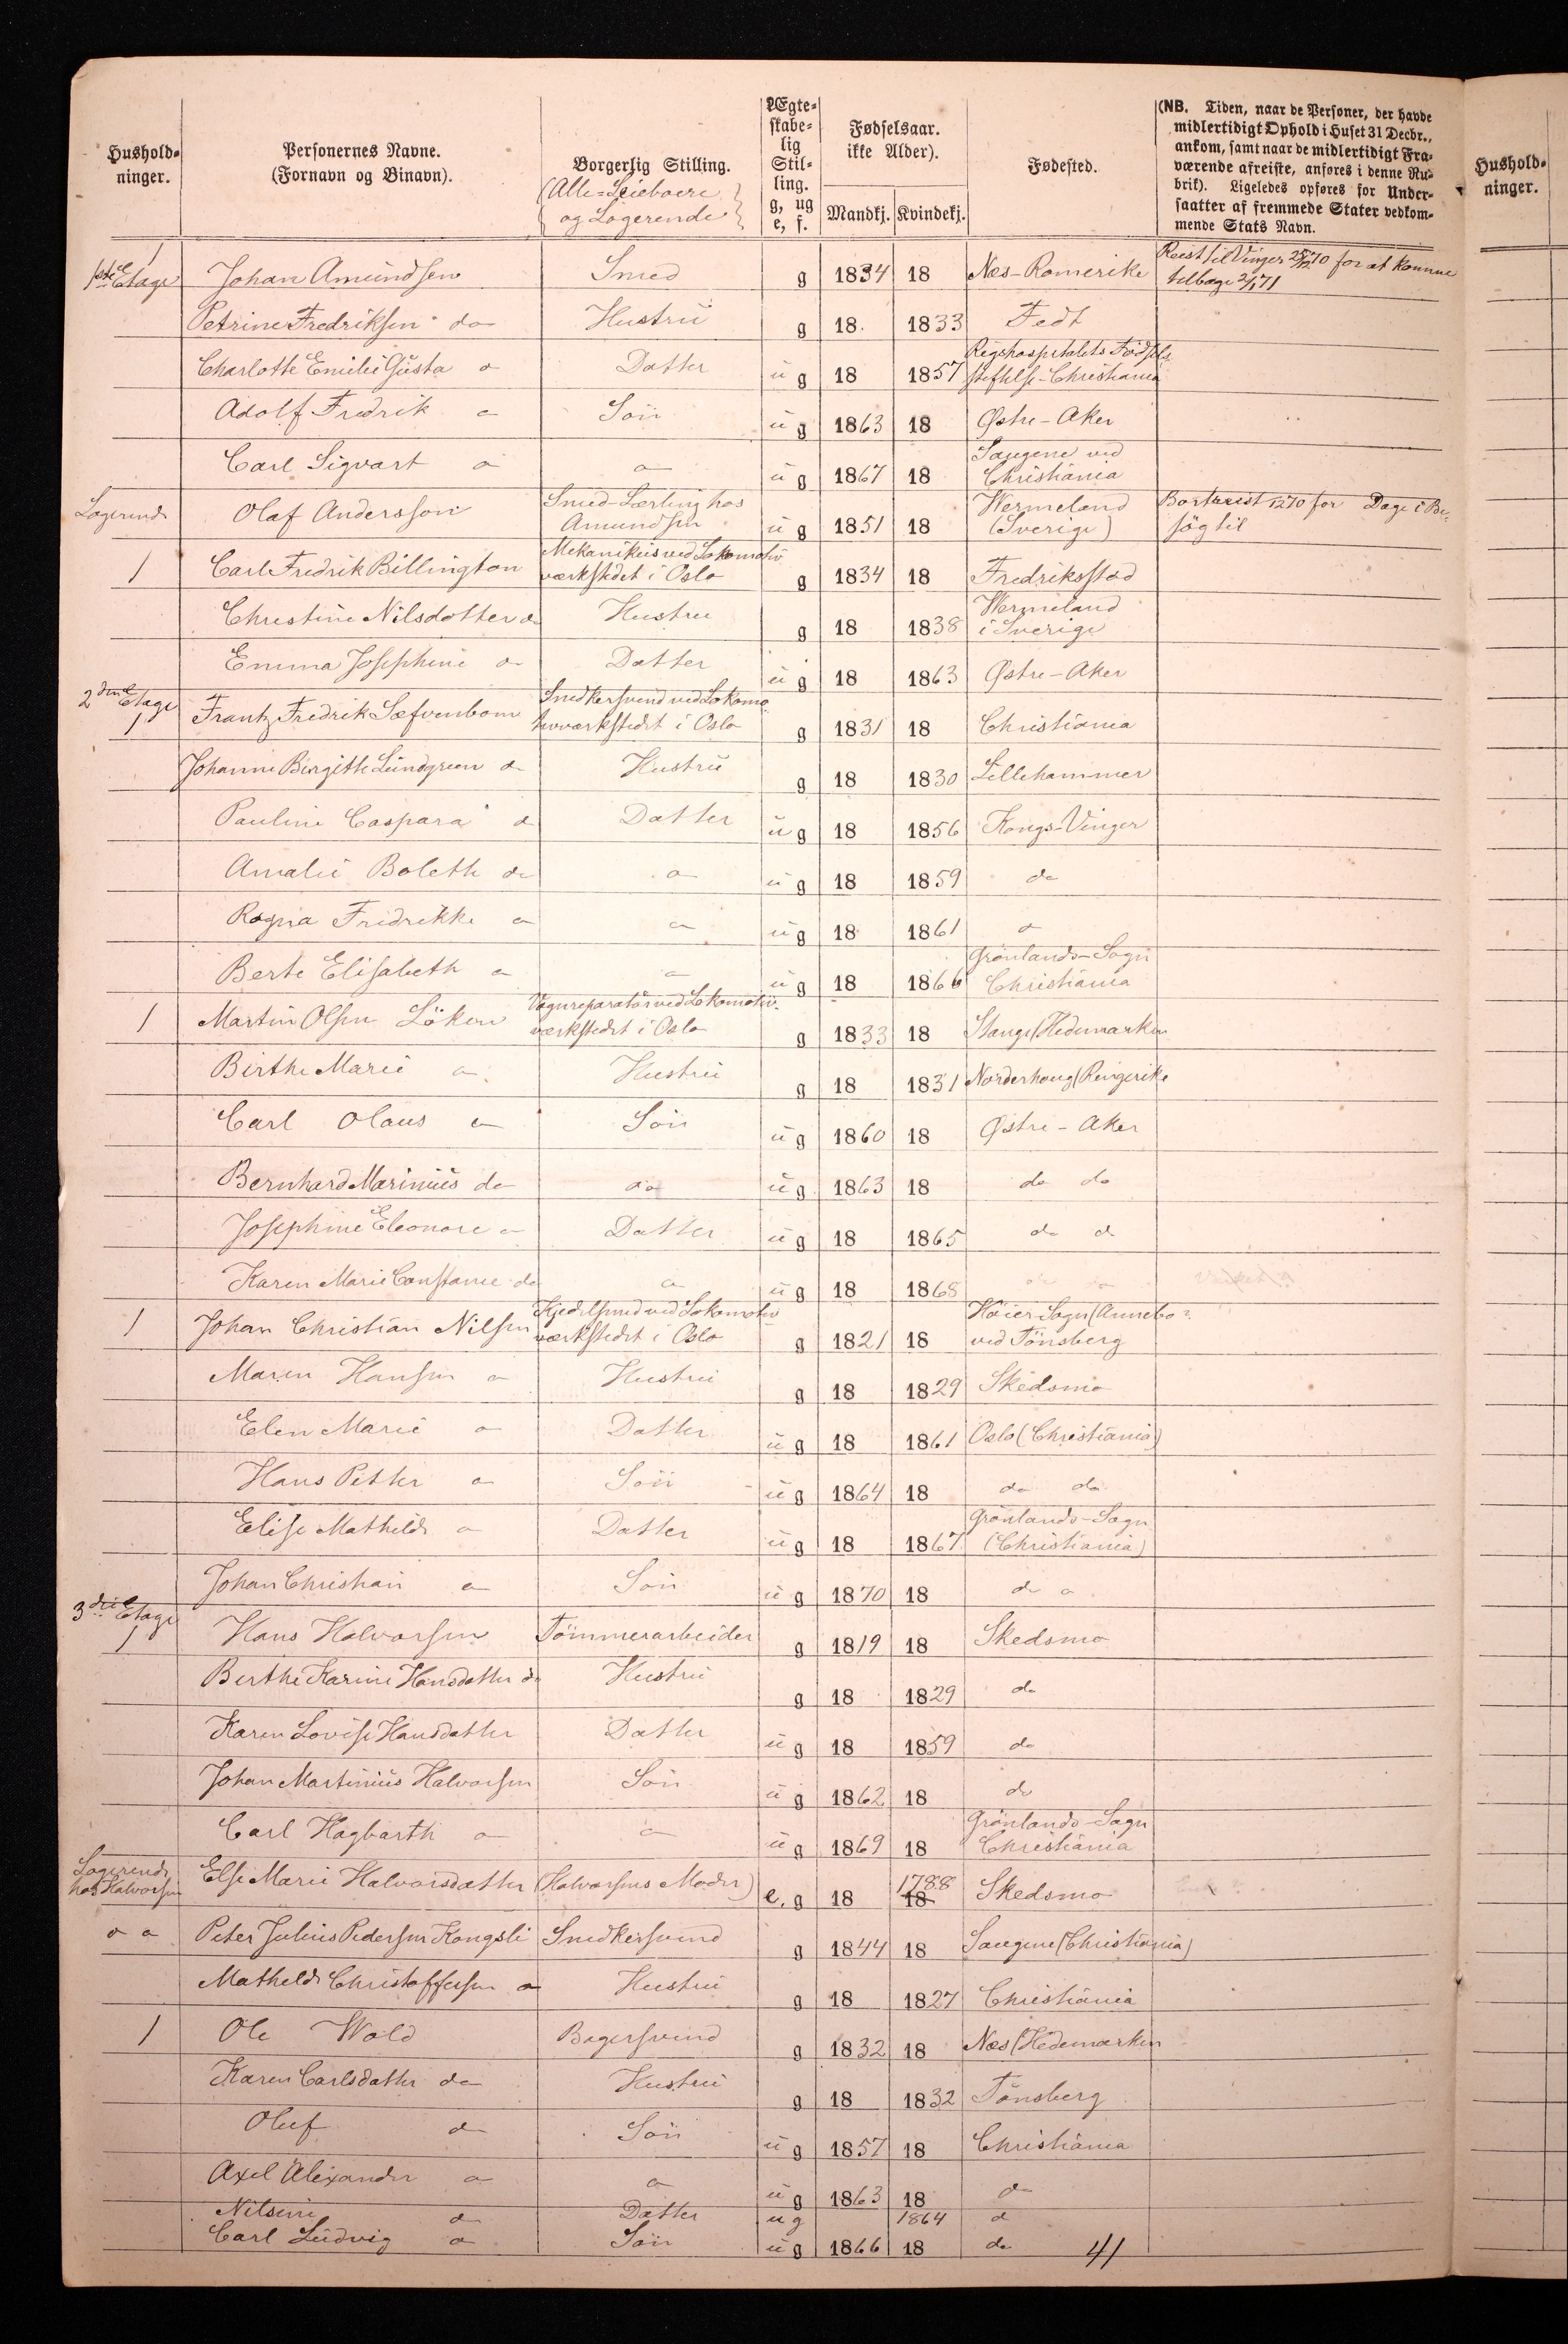 Hushold-
ninger.
Personernes Navne.
(Fornavn og Binavn).
Borgerlig Stilling.
(Alle Leieboere
og Logerende)
Ægte-
skabe-
lig
Stil-
ling.
g, ug
e, f.
Fødselsaar.
ikke Alder).
Mandkj. Kvindekj.
Fødested.
(NB. Tiden, naar de Personer, der havde
midlertidigt Ophold i Huset 31 Decbr.,
ankom, samt naar de midlertidigt Fra-
værende afreiste, anføres i denne Ru-
brik). Ligeledes opføres for Under-
saatter af fremmede Stater vedkom-
mende Stats Navn.
Hushold-
ninger.
1
1ste Etage Johan Amundsen Smed g 1834 18 Næs-Romerike Reist til Vinger 25/12 70 for at komme
tilbage 2/1 71
Petrine Fredriksen do Hustru g 18 1833 Fedt
Charlotte Emilie Gusta do Datter ug 18 1857 Rigshospitalets Fødsels
stiftelse-Christiania
Adolf Fredrik do Søn ug 1863 18 Østre-Aker
Carl Sigvart do do ug 1867 18 Saugene ved
Christiania
Logerende Olaf Andersson Smed-Lærling hos
Amundsen ug 1851 18 Wermeland
(Sverige) Bortreist 1270 for Dage i Be-
søg til
1 Carl Fredrik Billington Mekanikus ved Lokomotiv
værkstedet i Oslo g 1834 18 Fredriksstad
Christine Nilsdotter do Hustru g 18 1838 Wermeland
i Sverige
Emma Josephine do Datter ug 18 1863 Østre-Aker
2den Etage
1 Frantz Fredrik Sæfvenbom Snedkersvend ved Lokomo
tivværkstedet i Oslo g 1831 18 Christiania
Johanne Birgitte Lundgreen do Hustru g 18 1830 Lillehammer
Pauline Caspara do Datter ug 18 1856 Kongs-Vinger
Amalie Boleth do do ug 18 1859 do
Ragna Fredrikke do do ug 18 1861 do
Berte Elisabeth do do ug 18 1866 Grønlands-Sogn
Christiania
1 Martin Olsen Løken Vognreparatør ved Lokomotiv-
værkstedet i Oslo g 1833 18 Stange/Hedemarken
Birthe Marie do Hustru g 18 1831 Norderhoug/Ringerike
Carl Olaus do Søn ug 1860 18 Østre-Aker
Bernhard Marinius do do ug 1863 18 do do
Josephine Eleonore do Datter ug 18 1865 do do
Karen Marie Constance do do ug 18 1868 do do
1 Johan Christian Nilsen Kjedelsmed ved Lokomotiv
værkstedet i Oslo g 1821 18 Høier Sogn (Annebo?
ved Tönsberg
Maren Hansen do Hustru g 18 1829 Skedsmo
Elen Marie do Datter ug 18 1861 Oslo (Christiania)
Hans Petter do Søn ug 1864 18 do do
Elise Mathilde do Datter ug 18 1867 Grønlands-Sogn
(Christiania)
Johan Christian do Søn ug 1870 18 do do
3die Etage
1 Hans Halvorsen Tømmerarbeider g 1819 18 Skedsmo
Berthe Karine Hansdatter do Hustru g 18 1829 do
Karen Lovise Hansdatter Datter ug 18 1859 do
Johan Martinius Halvorsen Søn ug 1862 18 do
Carl Hagbarth do do ug 1869 18 Grønlands-Sogn
Christiania
Logerende
hos Halvorsen Else Marie Halvorsdatter (Halvorsens Moder) e. g 18 1788
18 Skedsmo
do do Peter Julius Pedersen Kongsli Snedkersvend g 1844 18 Saugene (Christiania)
Mathilde Christoffersen do Hustru g 18 1827 Christiania
1 Ole Wold Bagersvend g 1832 18 Næs/Hedemarken
Karen Carlsdatter do Hustru g 18 1832 Tønsberg
Oluf do Søn ug 1857 18 Christiania
Axel Alexander do do ug 1863 18 do
Nilsine do Datter ug 1864 do
Carl Ludvig do Søn ug 1866 18 do
41